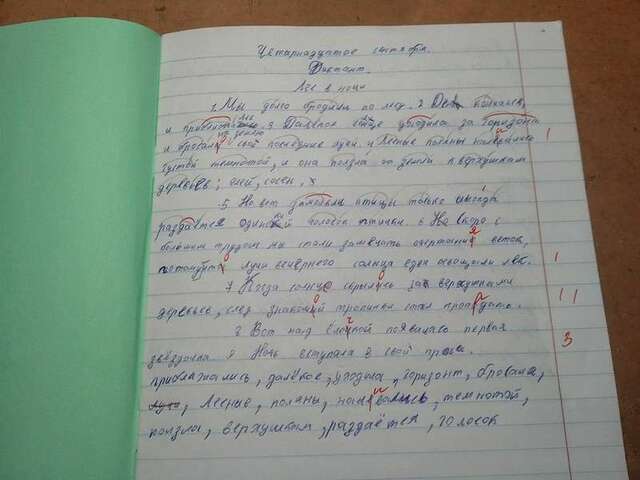 Четырнадцатое сентября.
Диктант.
Лес в ночи
1. Мы долго бродили по лесу. 2 День кончался,
и приближался 3 Далёкое солнце уходило за горизонт
и бросало свой последние лучи. 4 Лесные поляны наливались
густой темнотой, и она ползла за земли к верхушкам
деревьев; елей, сосен.
5. Но вот замолкли птицы только иногда
раздаётся одинокий голосок птички. 6 Но скоро с
большим трудом мы стали замечать очертания веток,
потому что лучи вечернего солнца едва освещали лес.
7 Когда солнце скрылось за верхушками
деревьев, след знакомой тропинки стал пропадать.
8 Вот над ёлкой появилась первая
звёздочка 9 Ночь вступала в свой права.
приближались, далёкое, уходила, горизонт, бросала,
лучи, лесные, поляны, наливались, темнотой,
ползла, верхушкам, раздаётся, голосок
1
1
1 1
3